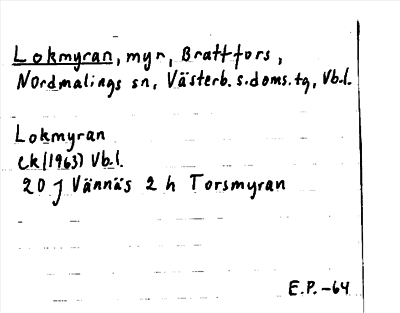 Lokmyran, myr, Brattfors,
Nordmalings sn, Västerb. s. doms. tg, Vb.l.
Lokmyran
Ek (1963) Vb.l.
20 J Vännäs 2 h Torsmyran
E.P. -64